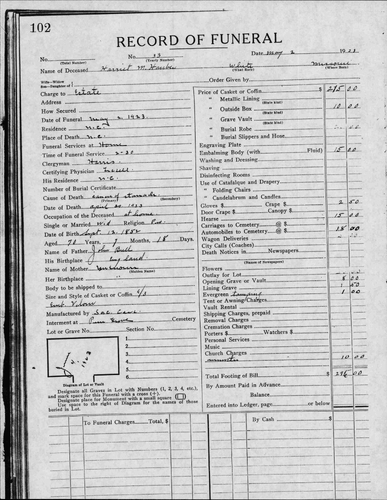 102
RECORD OF FUNERAL
No. 13 Date May 2 1923
(Entry Number) (Yearly Number)
Name of Deceased Harriet M. White Missouri
(What Race) (Where Born)
Charge to Estate Order Given by
Address Price of Casket or Coffin $ 215 00
How Secured " Metallic Lining (State Kind)
Date of Funeral May 2 1923 " Outside Box (State Kind) 10 00
Residence N.C. " Grave Vault (State Kind)
Place of Death N.C. " Burial Robe (State Kind)
Funeral Services at Home " Burial Slippers and Hose
Time of Funeral Service 2-30 Engraving Plate
Clergyman Harris Embalming Body (with Fluid) 15 00
Certifying Physician Washing and Dressing
His Residence N.C. Shaving
Number of Burial Certificate Disinfecting Rooms
Cause of Death cancer of stomach Use of Catafalque and Drapery
(Primary or Secondary) " Folding Chairs
Date of Death April 30 1923 " Candelabrum and Candles
Occupation of the Deceased at home Gloves $ Crape $ 2 50
Single or Married Wid Religion Door Crape $ Canopy $
Date of Birth Sept. 12 1852 Hearse 15 00
Aged 70 Years 7 Months, 18 Days Carriages to Cemetery @ $
Name of Father John Bell Automobiles to Cemetery @ $ 15 00
His Birthplace England Wagon Deliveries
Name of Mother unknown City Calls (Coaches)
(Maiden Name) Death Notices in Newspapers
Her Birthplace (Names of Newspapers)
Body to be shipped to Flowers
Size and Style of Casket or Coffin 6/3 Outlay for Lot
Opening Grave or Vault 8 00
Manufactured by Lining Grave 1 50
Interment at Cemetery Evergreen 1 00
Lot or Grave No. Section No. Tent or Awning
Vault Rental
Shipping Charges, prepaid
Removal Charges
Cremation Charges
Porters $ Watchers $
Personal Services
Music
Church Charges
minister 10 00
Diagram of Lot or Vault
1.
2.
3.
4.
5.
6.
Designate all Graves in Lot with Numbers (1, 2, 3, 4, etc.), Total Footing of Bill $
and mark space for this Funeral with a cross (+). By Amount Paid in Advance
Designate place for Monument with a small square (□) Balance
Use space to the right of Diagram for the names of those
buried in Lot. Entered into Ledger, page or below
To Funeral Charges, Total $ By Cash $